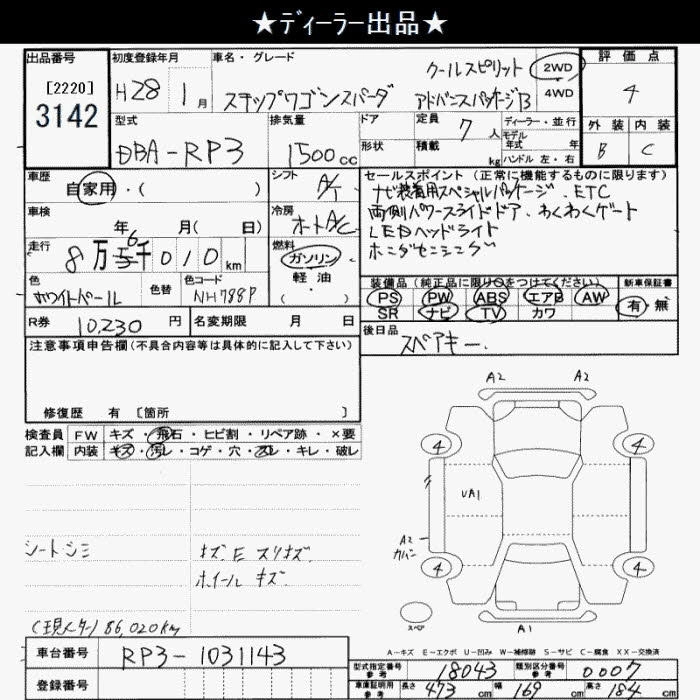 ★ディーラー出品★
出品番号 初度登録年月 車名・グレード 評価点
[2220] 3142
H28 1月 ステップワゴンスパーダ クールスピリット アドバンスパッケージB
2WD
4WD
4
外装 内装
B C
型式 排気量 ドア 定員 7人 ディーラー・並行
モデル年式 年
形状 積載 kg ハンドル 左・右
DBA-RP3 1500cc
車歴 自家用・( ) シフト A/T
車検 年 月( 日) 冷房 オートA/C
走行 8万6千010km 燃料 ガソリン
軽・油
・( )
色 ホワイトパール 色替 色コード NH788P
R券 10,230円 名変期限 月 日
セールスポイント (正常に機能するものに限ります)
ナビ装着用スペシャルパッケージ. ETC
両側パワースライドドア. わくわくゲート
LEDヘッドライト
ホンダセンシング
装備品(純正品に限り○をつけてください) 新車保証書
PS PW ABS エアB AW 有・無
SR ナビ TV カワ
後日品 スペアキー.
注意事項申告欄(不具合内容等は具体的に記入して下さい)
修復歴 有 〔箇所 〕
検査員 FW キズ・飛石・ヒビ割・リペア跡・×要
記入欄 内装 キズ・汚レ・コゲ・穴・スレ・キレ・破レ
シートシミ
キズE スリキズ
ホイールキズ
(現メター) 86,020km
A2 A2
4 4
UA1
A2
4 4
スペア
A1
A-キズ E-エクボ U-凹み W-補修跡 S-サビ C-腐食 XX-交換済
車台番号 RP3-1031143
登録番号
型式指定番号 参考 18043 類別区分番号 参考 0007
車庫証明用 参考 長さ 473cm 幅 169cm 高さ 184cm